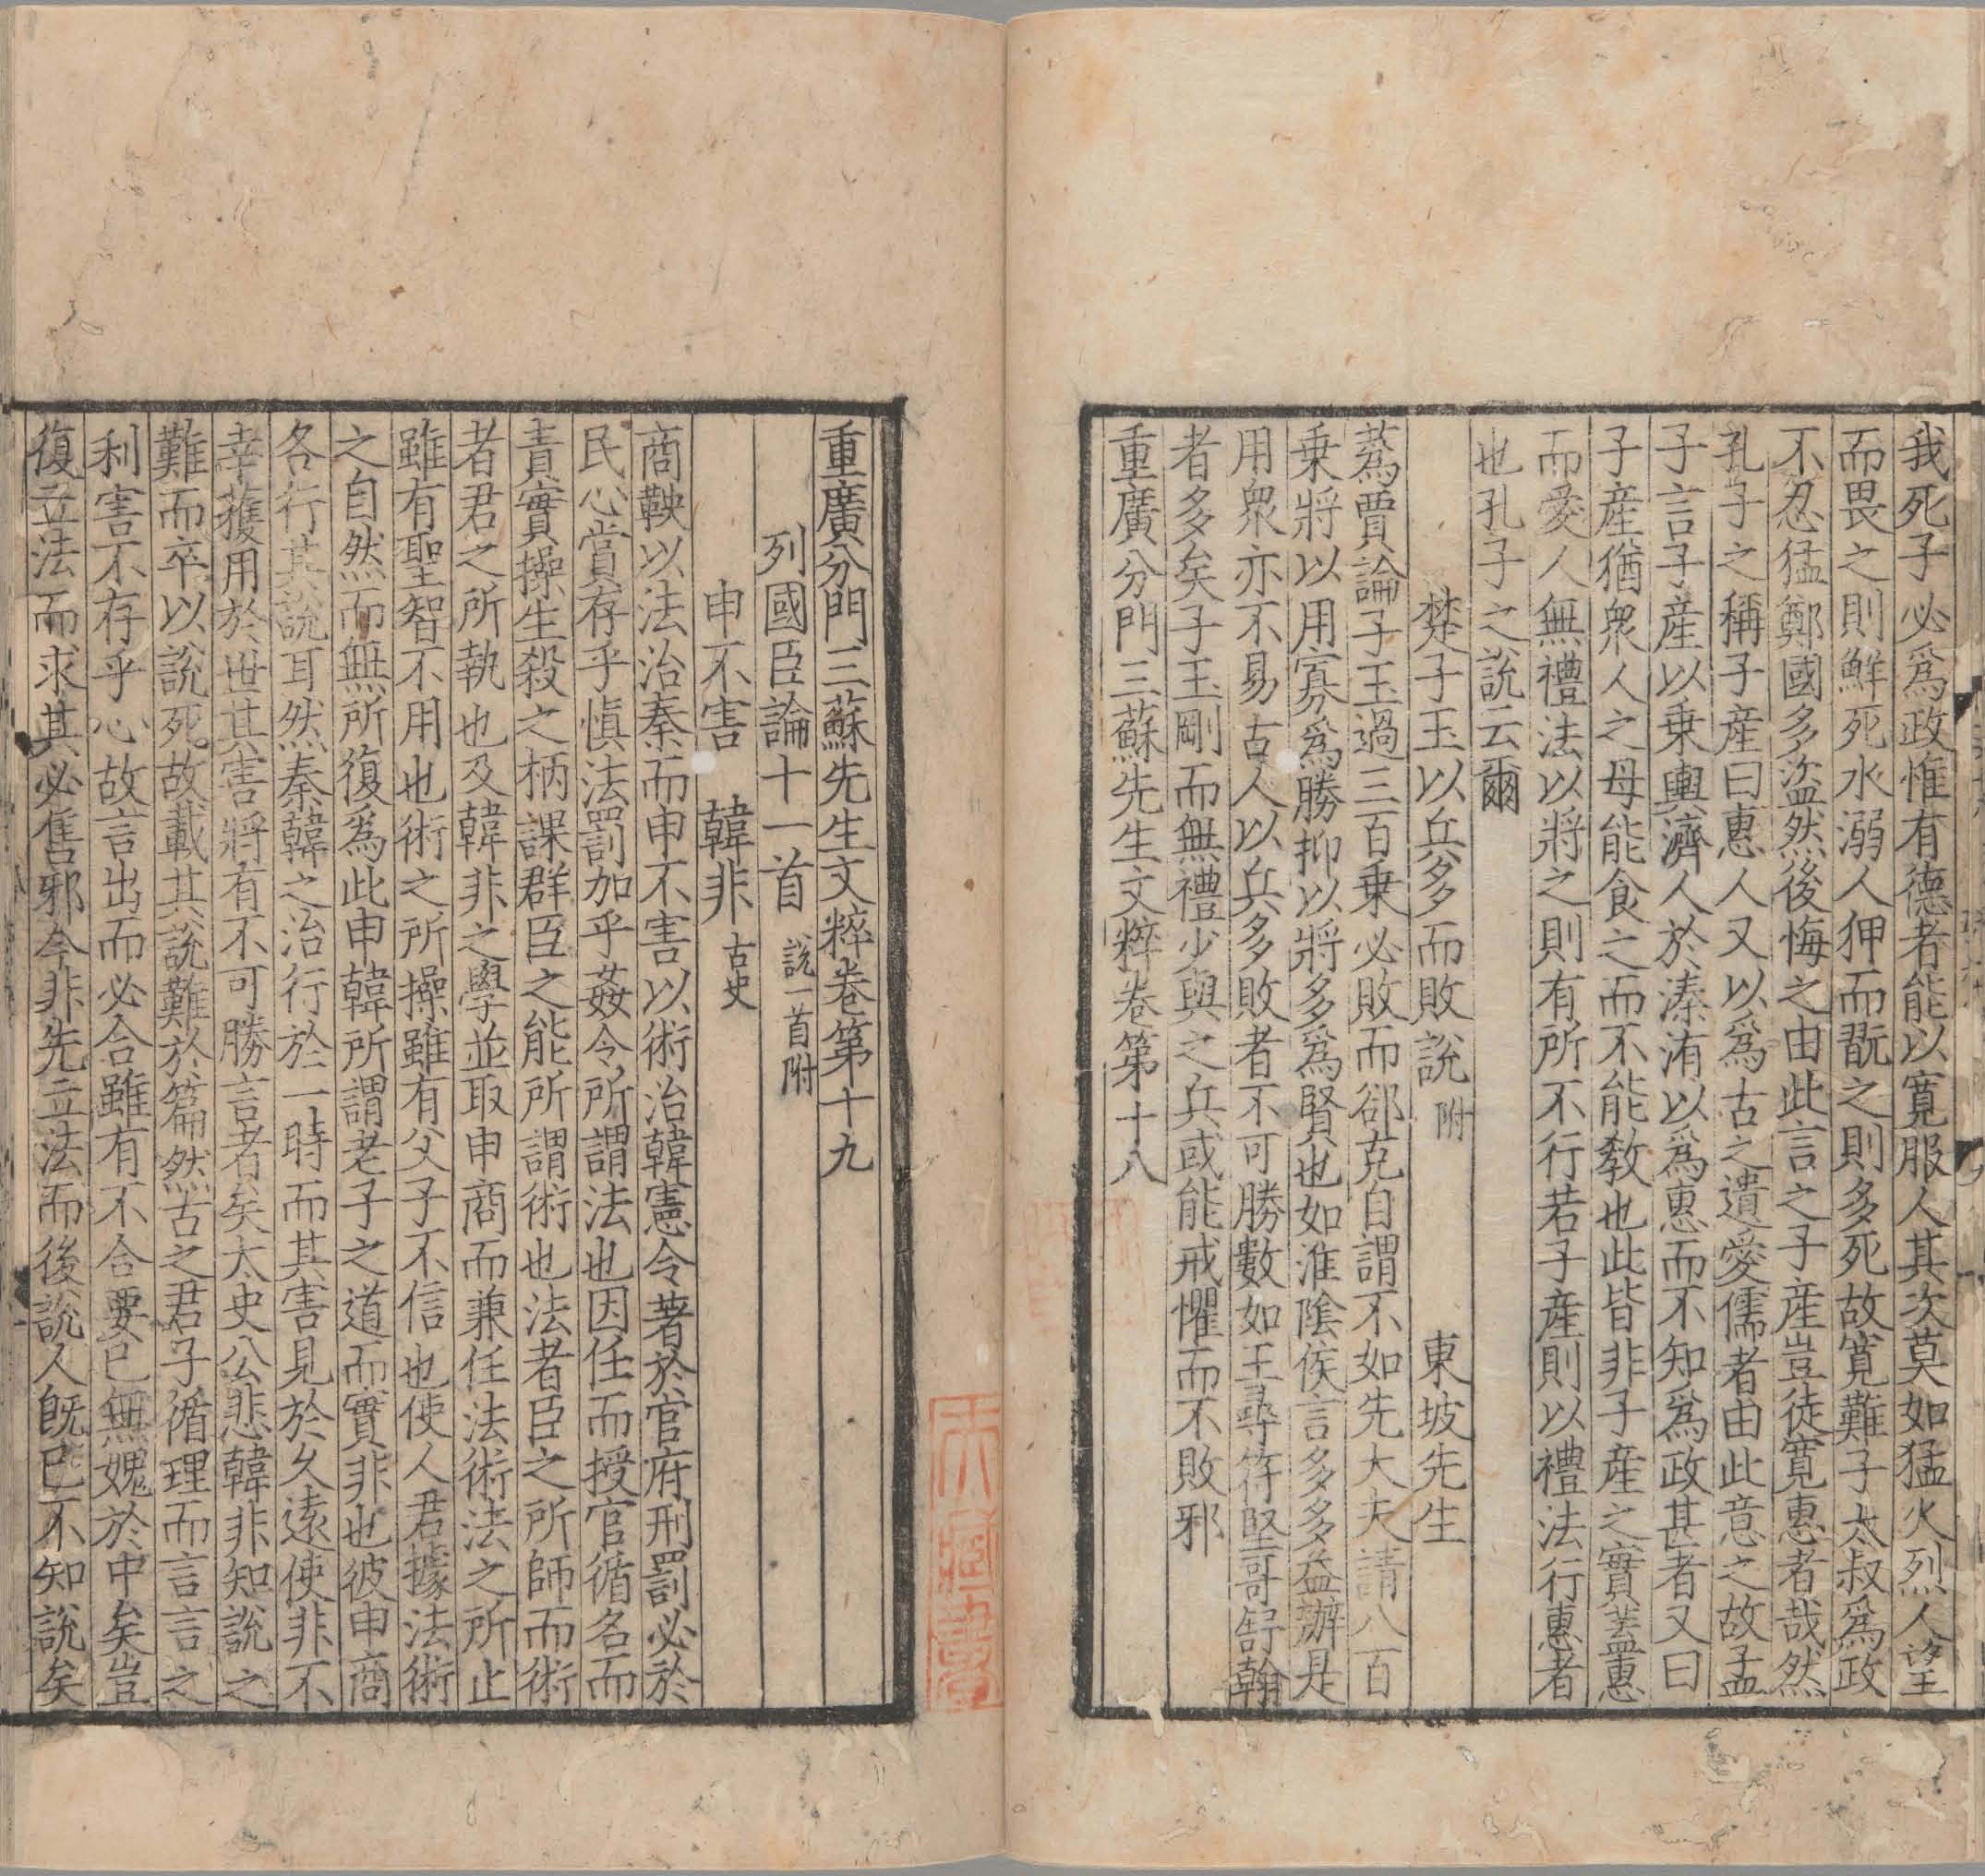 我死子必爲政惟有德者能以寬服人其次莫如猛火烈人望
而畏之則鮮死水溺人狎而翫之則多死故寬難子太叔爲政
不忍猛鄭國多盜然後悔之由此言之子產豈徒寬惠者哉然
孔子之稱子產曰惠人又以爲古之遺愛儒者由此意之故孟
子言子產以乗輿濟人於溱洧以爲惠而不知爲政甚者又曰
子產猶衆人之母能食之而不能敎也此皆非子產之實蓋惠
而愛人無禮法以將之則有所不行若子產則以禮法行惠者
也孔子之說云爾
楚子玉以兵多而敗說 附 東坡先生
蒍賈論子玉過三百乗必敗而郤克自謂不如先大夫請八百
乗將以用寡爲勝抑以將多爲賢也如淮陰侯言多多益辦是
用衆亦不易古人以兵多敗者不可勝數如王尋苻堅哥舒翰
者多矣子玉剛而無禮少與之兵或能戒懼而不敗邪
重廣分門三蘇先生文粹卷第十八
重廣分門三蘇先生文粹卷第十九
列國臣論十一首 說一首附
申不害 韓非 古史
商鞅以法治秦而申不害以術治韓憲令著於官府刑罰必於
民心賞存乎愼法罰加乎姦令所謂法也因任而授官循名而
責實操生殺之柄課群臣之能所謂術也法者臣之所師而術
者君之所執也及韓非之學並取申商而兼任法術法之所止
雖有聖智不用也術之所操雖有父子不信也使人君據法術
之自然而無所復爲此申韓所謂老子之道而實非也彼申商
各行其說耳然秦韓之治行於一時而其害見於久遠使非不
幸獲用於世其害將有不可勝言者矣太史公悲韓非知說之
難而卒以說死故載其說難於篇然古之君子循理而言言之
利害不存乎心故言出而必合雖有不合要已無媿於中矣豈
復立法而求其必售邪今非先立法而後說人旣已不知說矣